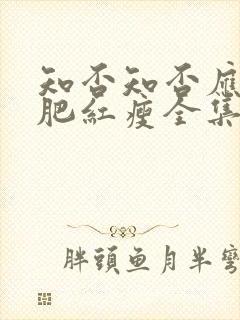 知否知否應
肥紅瘦全集
胖頭鱼月半彎